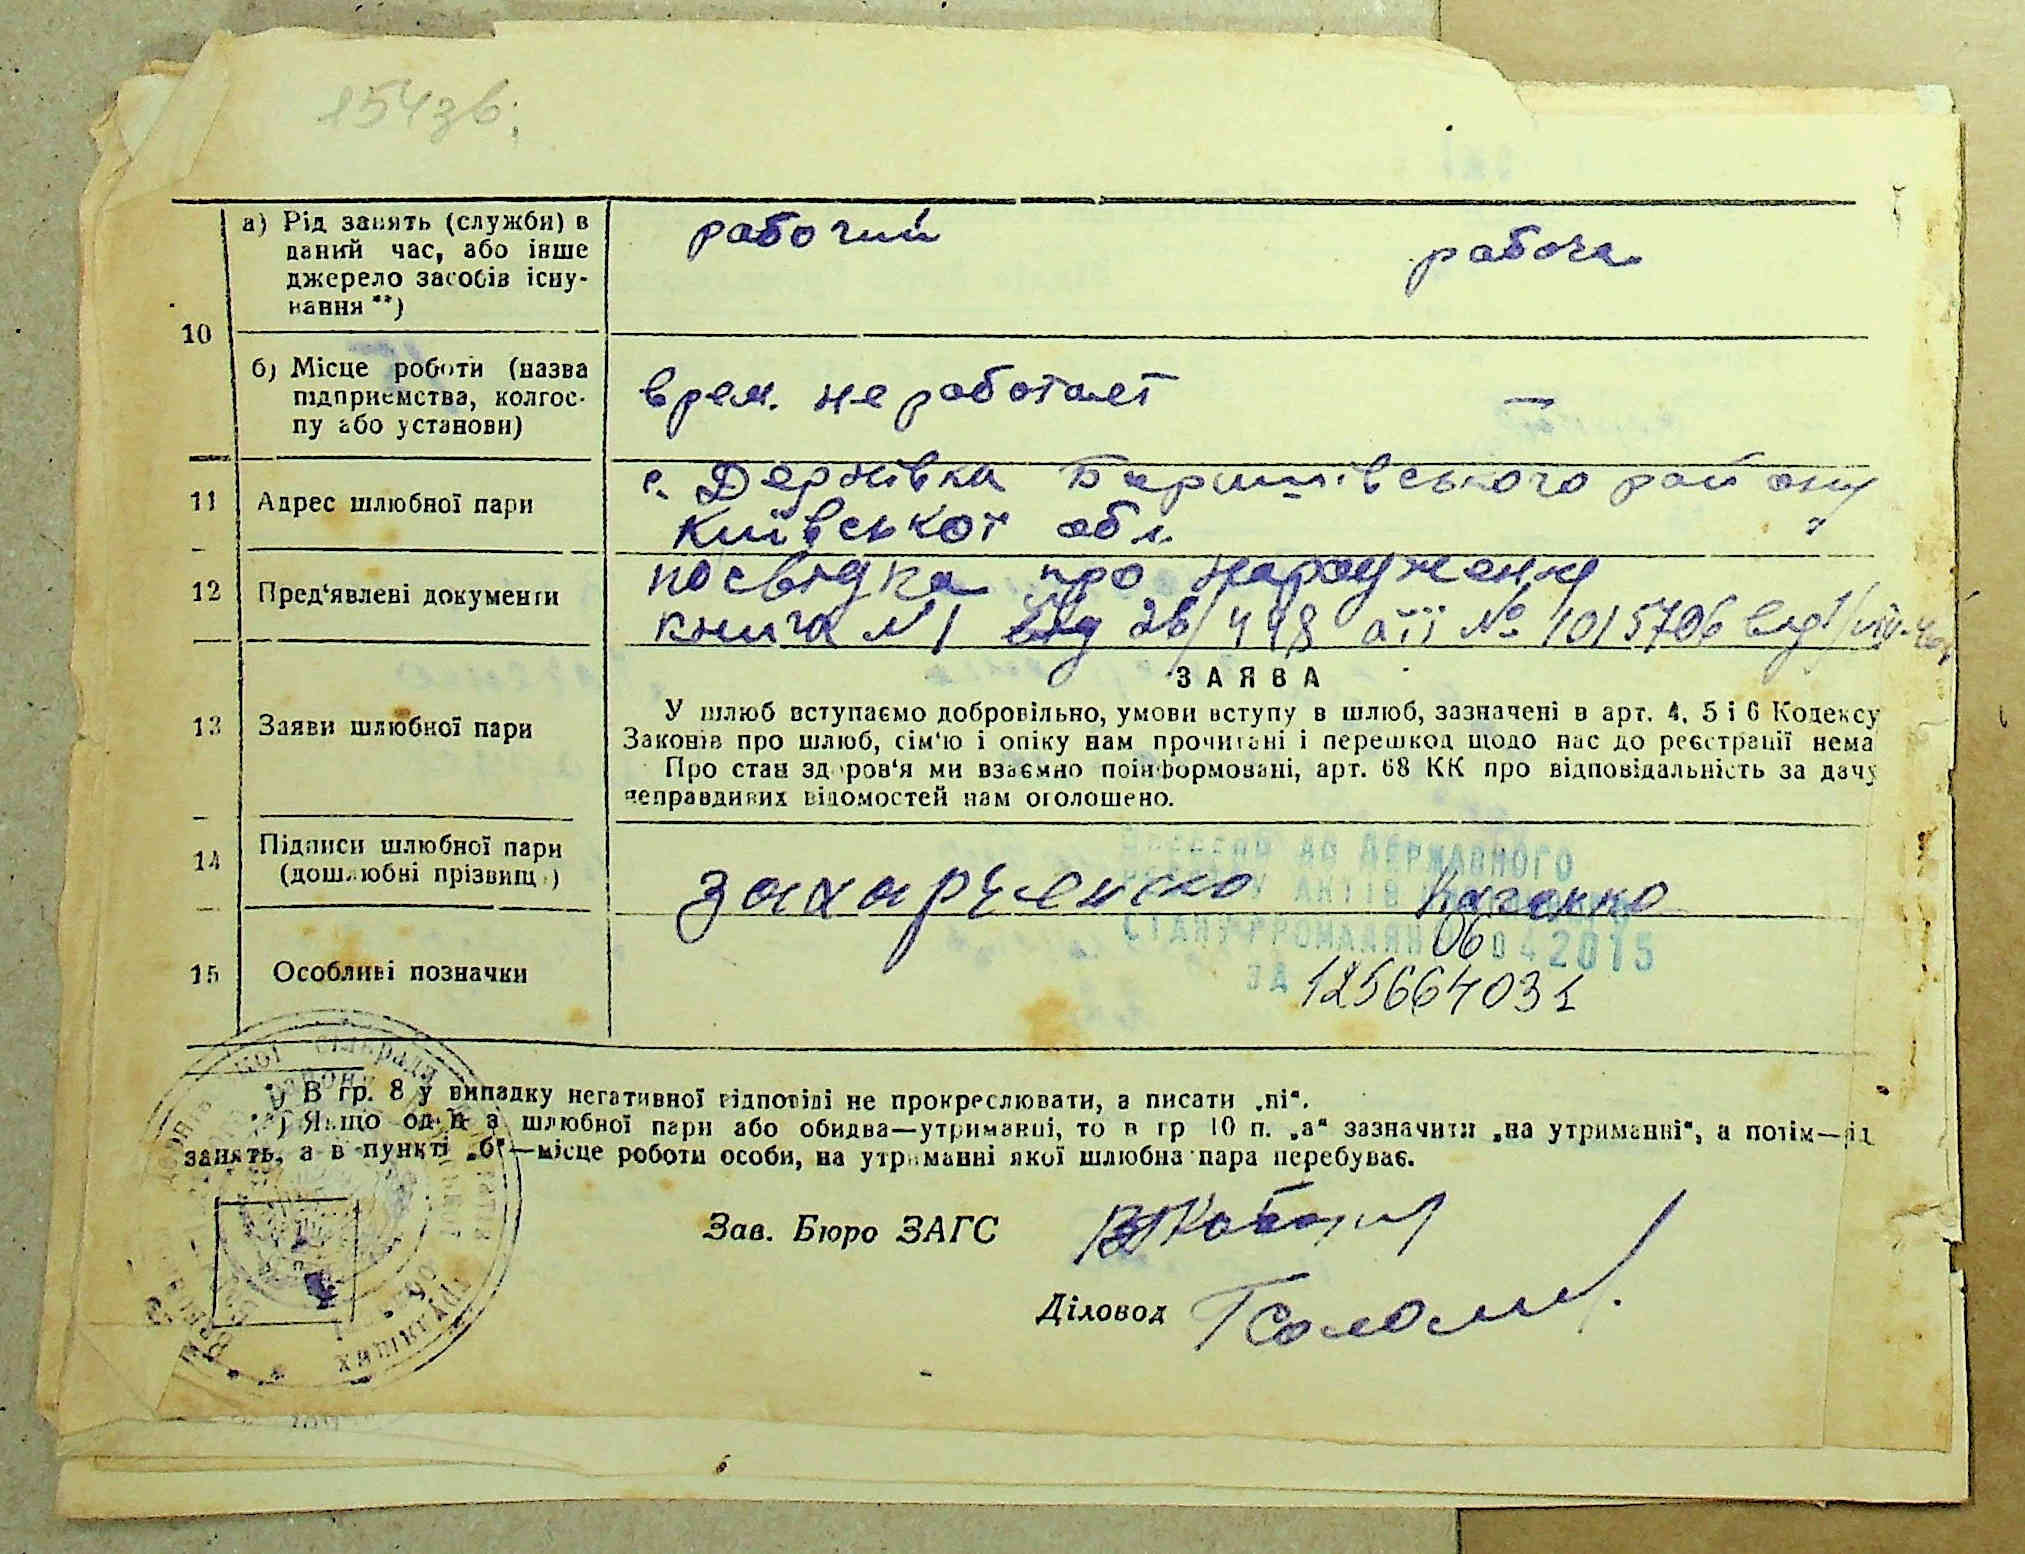 154зв.
10
а) Рід занять (служби) в
даний час, або інше
джерело засобів існу-
вання**)
рабочий
рабоча
б) Місце роботи (назва
підприємства, колгос-
пу або установи)
врем. не работает
—
11
Адрес шлюбної пари
с. Дернівка Баришівського району
Київської обл.
12
Пред'явлені документи
посвідка про народження
книга №1 від 28/448 аїї № 1015706 від
13
Заяви шлюбної пари
ЗАЯВА
У шлюб вступаємо добровільно, умови вступу в шлюб, зазначені в арт. 4, 5 і 6 Кодексу
Законів про шлюб, сім'ю і опіку нам прочитані і перешкод щодо нас до реєстрації нема
Про стан здоров'я ми взаємно поінформовані, арт. 68 КК про відповідальність за дачу
неправдивих відомостей нам оголошено.
14
Підписи шлюбної пари
(дошлюбні прізвища)
Захарченко
ДО ДЕРЖАВНОГО
АКТІВ
СТАНУ ГРОМАДЯН
06 04 2015
15
Особливі позначки
ЗА 125664031
*) В гр. 8 у випадку негативної відповіді не прокреслювати, а писати „ні“.
**) Якщо один з шлюбної пари або обидва—утриманці, то в гр 10 п. „а“ зазначити „на утриманні“, а потім—рід
занять, а в пункті „б“—місце роботи особи, на утриманні якої шлюбна пара перебуває.
Зав. Бюро ЗАГС
Діловод